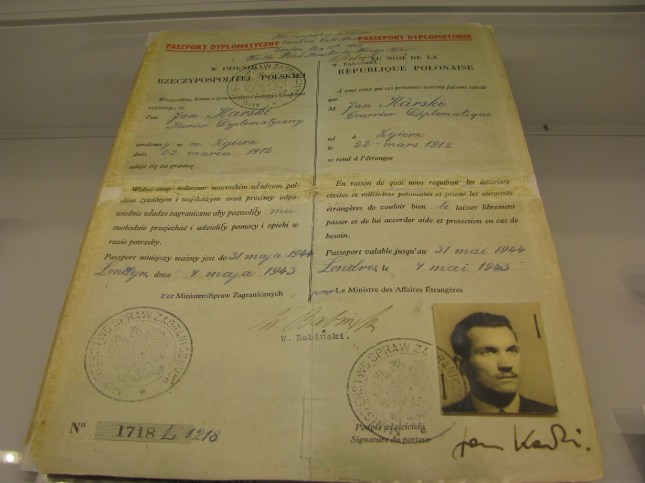 PASZPORT DYPLOMATYCZNY
W IMIENIU
RZECZYPOSPOLITEJ POLSKIEJ
Pan Jan Karski
Kurier Dyplomatyczny
urodzony w m. Zgierz
dnia 22 marca 1912
udaje się za granicę
Wobec czego wszystkim władzom pol-
skim cywilnym i wojskowym oraz prosimy odpo-
wiednie władze zagraniczne aby pozwoliły mu
swobodnie przejechać i udzieliły pomocy i opieki w
razie potrzeby.
Paszport niniejszy ważny jest do 31 maja 1944
Londyn, dnia 4 maja 1943
Minister Spraw Zagranicznych
PASSEPORT DIPLOMATIQUE
AU NOM DE LA
RÉPUBLIQUE POLONAISE
A tous ceux qui ces présentes verront faisons savoir
que
M Jan Karski
Courrier Diplomatique
né à Zgierz
le 22 mars 1912
se rend à l'étranger
En raison de quoi nous requérons les autorités
civiles et militaires polonaises et prions les autorités
étrangères de vouloir bien le laisser librement
passer et de lui accorder aide et protection en cas de
besoin.
Passeport valable jusqu'au 31 mai 1944
Londres, le 4 mai 1943
Le Ministre des Affaires Étrangères
W. Babiński.
MINISTERSTWO SPRAW ZAGRANICZNYCH
MINISTERSTWO SPRAW ZAGRANICZNYCH
Nº 1718 L 1218
Podpis właściciela
Signature du porteur
Jan Karski.